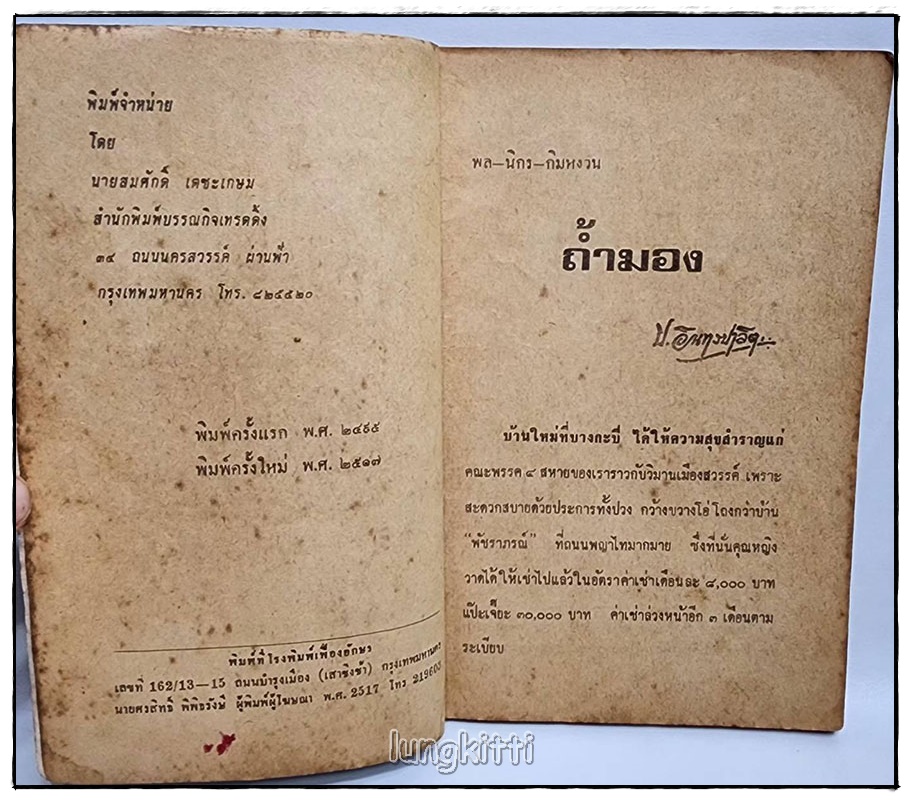 พิมพ์จำหน่าย
โดย
นายสมศักดิ์ เตชะเกษม
สำนักพิมพ์บรรณกิจเทรดดิ้ง
๓๔ ถนนนครสวรรค์ ผ่านฟ้า
กรุงเทพมหานคร โทร. ๘๒๕๕๒๐
พิมพ์ครั้งแรก พ.ศ. ๒๔๙๕
พิมพ์ครั้งใหม่ พ.ศ. ๒๕๑๗
พิมพ์ที่โรงพิมพ์เฟื่องอักษร
เลขที่ 162/13—15 ถนนบำรุงเมือง (เสาชิงช้า) กรุงเทพมหานคร
นายศรสิทธิ์ พิพิธรังษี ผู้พิมพ์ผู้โฆษณา พ.ศ. 2517 โทร 219605
พล—นิกร—กิมหงวน
ถ้ำมอง
ป. อินทรปาลิต
บ้านใหม่ที่บางกะปี ได้ให้ความสุขสำราญแก่
คณะพรรค ๔ สหายของเราราวกับวิมานเมืองสวรรค์ เพราะ
สะดวกสบายด้วยประการทั้งปวง กว้างขวางโอ่โถงกว่าบ้าน
“พัชราภรณ์” ที่ถนนพญาไทมากมาย ซึ่งที่นั่นคุณหญิง
วาดได้ให้เช่าไปแล้วในอัตราค่าเช่าเดือนละ ๔,๐๐๐ บาท
แป๊ะเจี๊ยะ ๓๐,๐๐๐ บาท ค่าเช่าล่วงหน้าอีก ๓ เดือนตาม
ระเบียบ
lungkitti